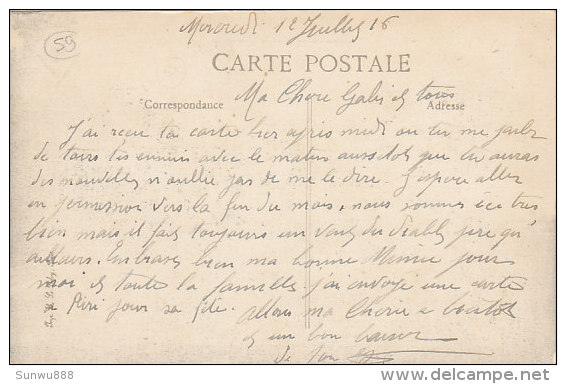 Mercredi 12 Juillet 16
59
CARTE POSTALE
Correspondance
Adresse
Ma Chere Gaby et tous
J'ai recu ta carte hier apres midi ou tu me parle
de tous tes ennuis avec le matin aussitot que tu auras
des nouvelles n'oublie pas de me le dire. J'espere aller
en permission vers la fin du mois, nous sommes ici tres
bien mais il fait toujours un vent du diable pire qu'
ailleurs. Embrasse bien ma bonne Mimie pour
moi et toute la famille j'envoye une carte
Riri pour sa fête. Allons ma Cherie a bientot
et un bon baiser
de ton
Sunwu888
delcampe.net